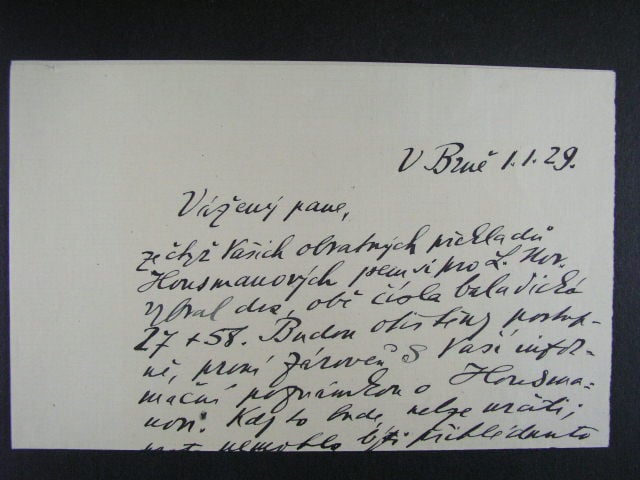 V Brně 1.1.29.
Vážený pane,
Vašich obratných překladů
Housmanových pro L. Nov.
vybral dva, obě čísla baladická
27 + 58. Budou otištěny postup-
ně, první zároveň s Vaší infor-
mační poznámkou o Housma-
novi. Kdy to bude nelze určiti;
nemohlo býti přihlédnuto